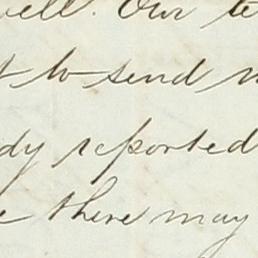 well. Our te
t to send
dy reported
e there may